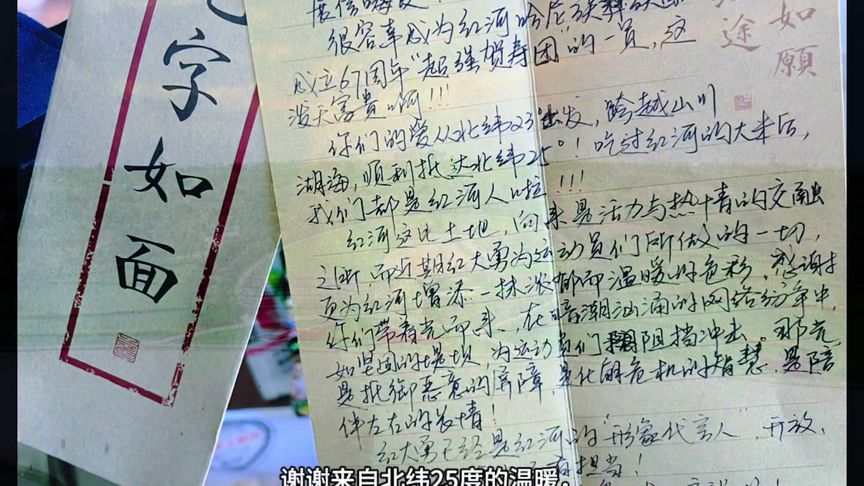 见字如面
如愿
途
很荣幸成为红河哈尼族彝族
成立67周年“超强贺寿团”的一员，这
泼天富贵啊!!!
你们的爱从北纬23°出发，跨越山川
湖海，顺利抵达北纬25°！吃过红河的大米后，
我们都是红河人啦!!!
红河这片土地，向来是活力与热情的交融
之所，而近期红大勇为运动员们所做的一切，
更为红河增添一抹浓郁而温暖的色彩，感谢
你们带着光而来，在暗潮汹涌的网络纷争中，
如坚固的堤坝，为运动员们阻挡冲击。那光
是抵御恶意的屏障，是化解危机的智慧，是陪
伴左右的友情！
红大勇已经是红河的“形象代言人”，开放，
有担当！
谢谢来自北纬25度的温暖，